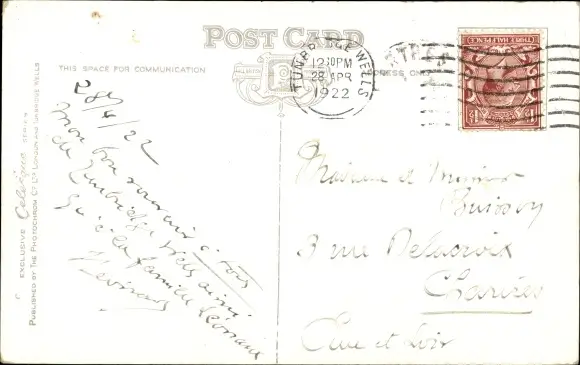 POST CARD
THIS SPACE FOR COMMUNICATION
ADDRESS ONLY
EXCLUSIVE Celesque SERIES
PUBLISHED BY THE PHOTOCHROM CO LTD LONDON AND TUNBRIDGE WELLS
TUNBRIDGE WELLS
12:30 PM
28 APR
1922
THREE HALF PENCE
28/4/22
Mon bon souvenir à tous
de Tunbridge Wells ainsi
qu'à la famille
Madame et Monsieur
Buisson
3 rue Delacroix
Chartres
Eure et Loir